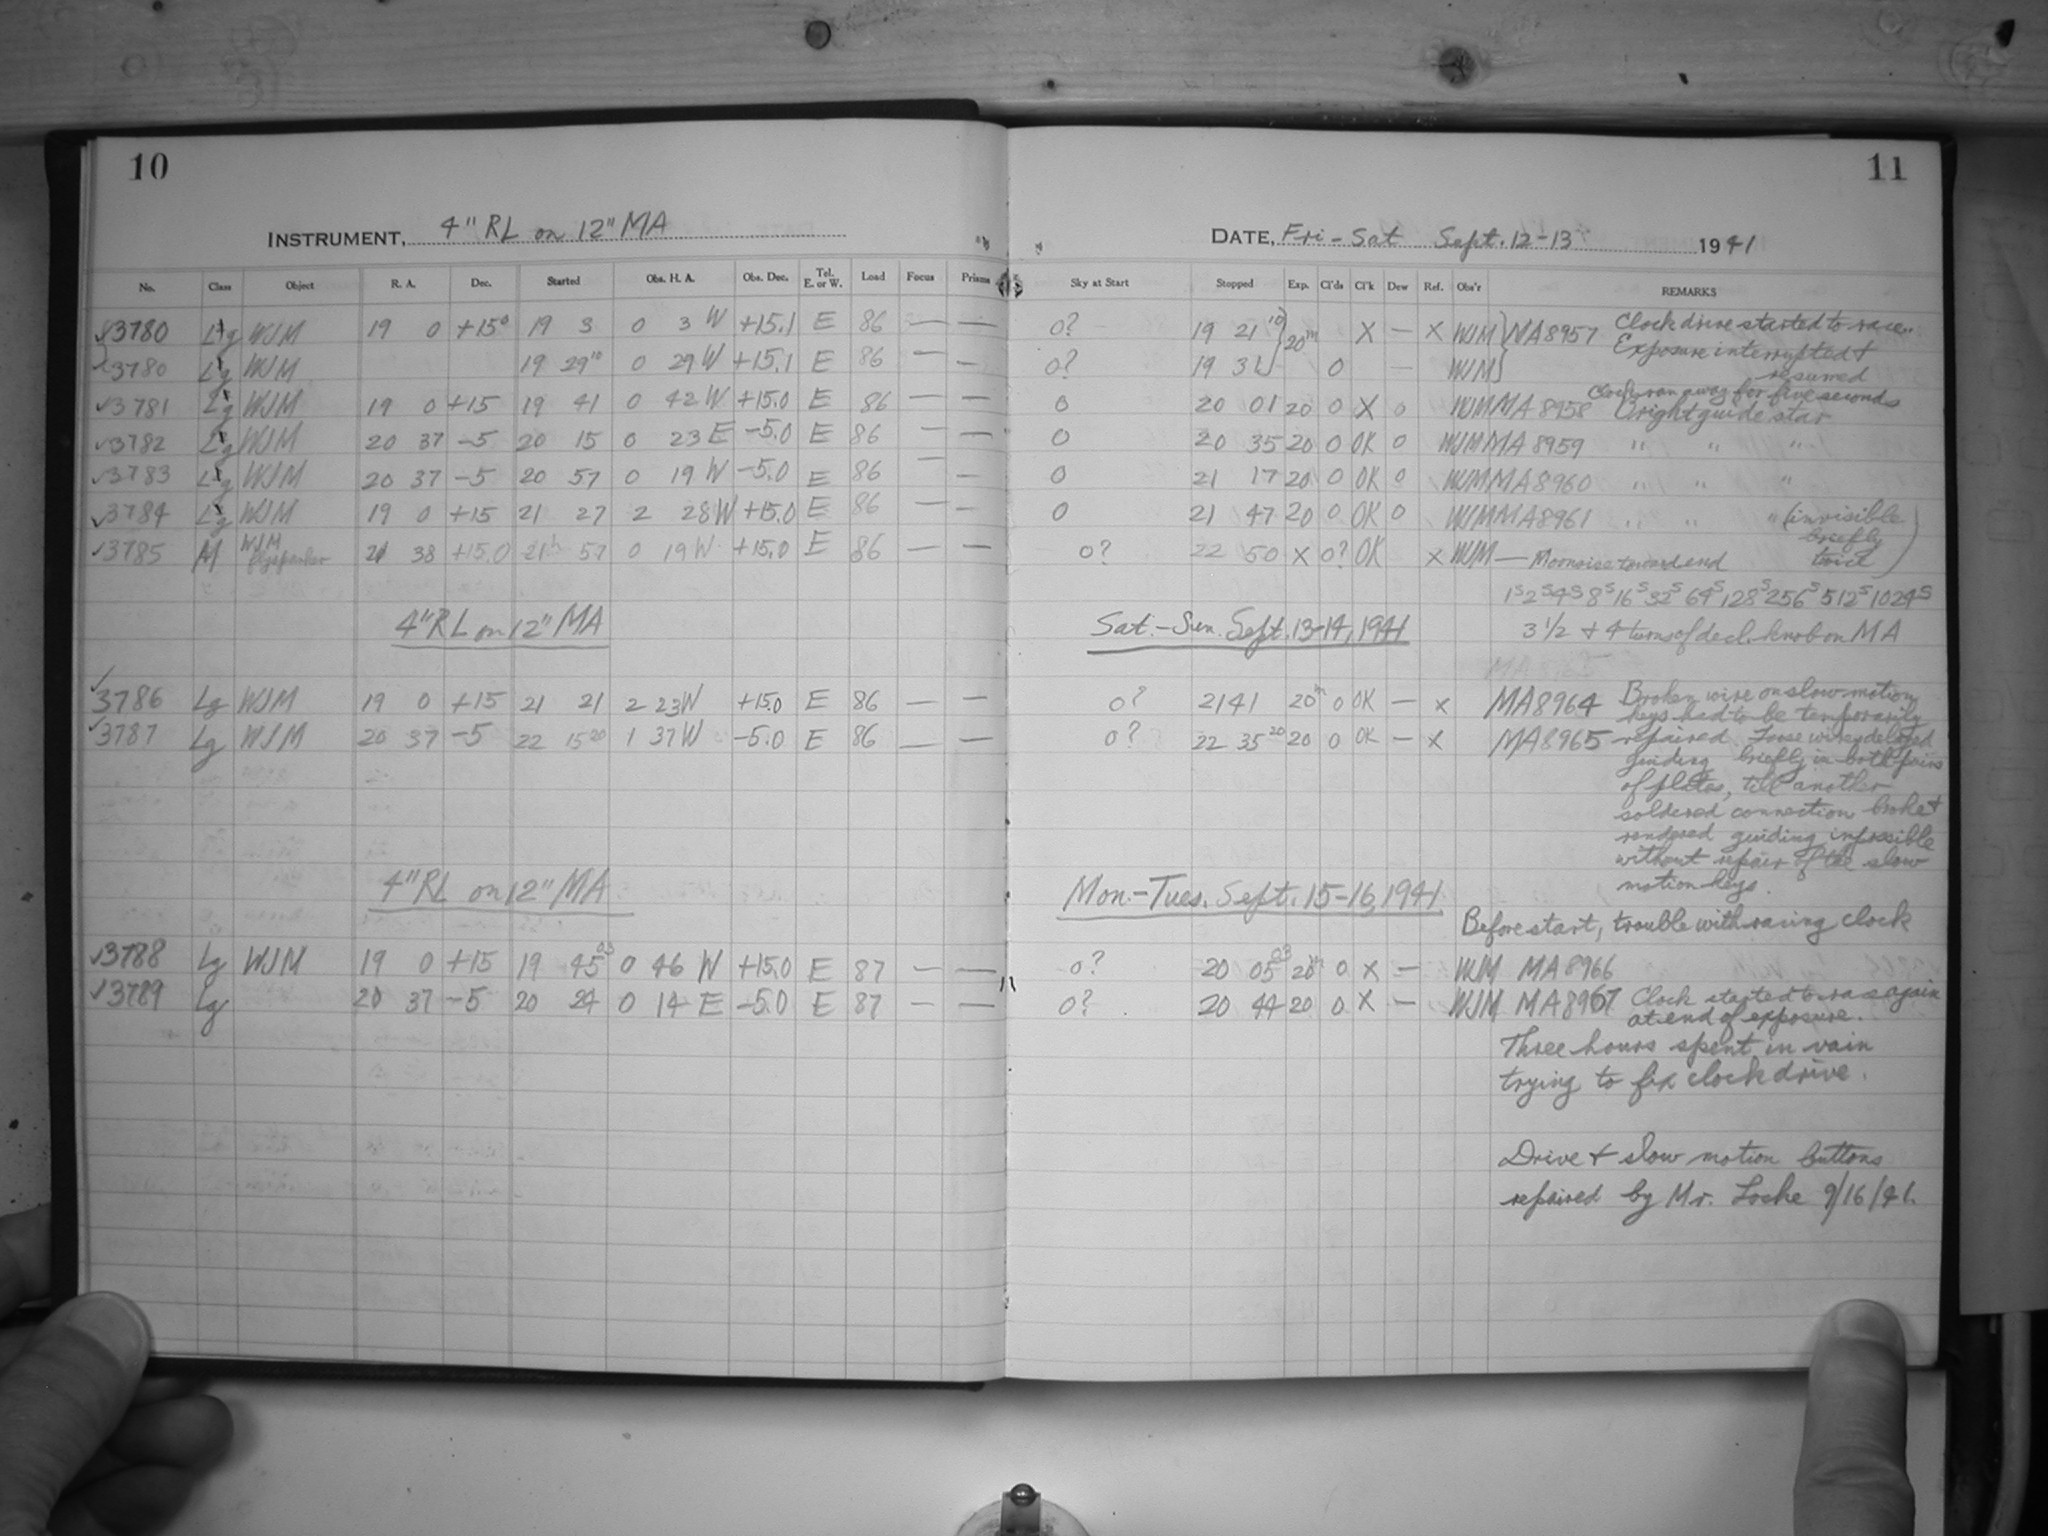 10
11
INSTRUMENT, 4" RL on 12" MA
DATE, Fri - Sat Sept. 12-13 1941
No. Class Object R. A. Dec. Started Obs. H. A. Obs. Dec. Tel. E. or W. Load Focus Prisms Sky at Start Stopped Exp. Cl'ds Cl'k Dew Ref. Obs'r REMARKS
3780 Lg WJM 19 0 +15° 19 3 0 3 W +15.1 E 86 — — 0? 19 21 10 20m X — X WJM MA8957 Clock drive started to race.
Exposure interrupted &
3780 Lg WJM 19 29 10 0 29 W +15.1 E 86 — — 0? 19 31 0 — WJM resumed
3781 Lg WJM 19 0 +15 19 41 0 42 W +15.0 E 86 — — 0 20 01 20 0 X 0 WJM MA 8958 Clock ran away for five seconds
bright guide star
3782 Lg WJM 20 37 -5 20 15 0 23 E -5.0 E 86 — — 0 20 35 20 0 OK 0 WJM MA 8959 " " "
3783 Lg WJM 20 37 -5 20 57 0 19 W -5.0 E 86 — — 0 21 17 20 0 OK 0 WJM MA 8960 " " "
3784 Lg WJM 19 0 +15 21 27 2 28 W +15.0 E 86 — — 0 21 47 20 0 OK 0 WJM MA8961 " " " (invisible briefly twice)
3785 M WJM 21 38 +15.0 21h 57 0 19 W +15.0 E 86 — — 0? 22 50 X 0? OK X WJM — Moonrise toward end
1s 2s 4s 8s 16s 32s 64s 128s 256s 512s 1024s
4" RL on 12" MA Sat.-Sun. Sept. 13-14, 1941 3 1/2 & 4 turns of decl. knob on MA
3786 Lg WJM 19 0 +15 21 21 2 23 W +15.0 E 86 — — 0? 21 41 20m 0 OK — X MA8964 Broken wire on slow motion
keys had to be temporarily
3787 Lg WJM 20 37 -5 22 15 20 1 37 W -5.0 E 86 — — 0? 22 35 20 20 0 OK — X MA8965 repaired. Loose wire delayed
guiding briefly in both pairs
of plates, till another
soldered connection broke &
rendered guiding impossible
without repair of the slow
motion keys.
4" RL on 12" MA Mon.-Tues. Sept. 15-16, 1941
Before start, trouble with racing clock
3788 Lg WJM 19 0 +15 19 45 03 0 46 W +15.0 E 87 — — 0? 20 05 03 20m 0 X — WJM MA 8966
3789 Lg 20 37 -5 20 24 0 14 E -5.0 E 87 — — 0? 20 44 20 0 X — WJM MA 8967 Clock started to race again
at end of exposure.
Three hours spent in vain
trying to fix clock drive.
Drive & slow motion buttons
repaired by Mr. Locke 9/16/41.